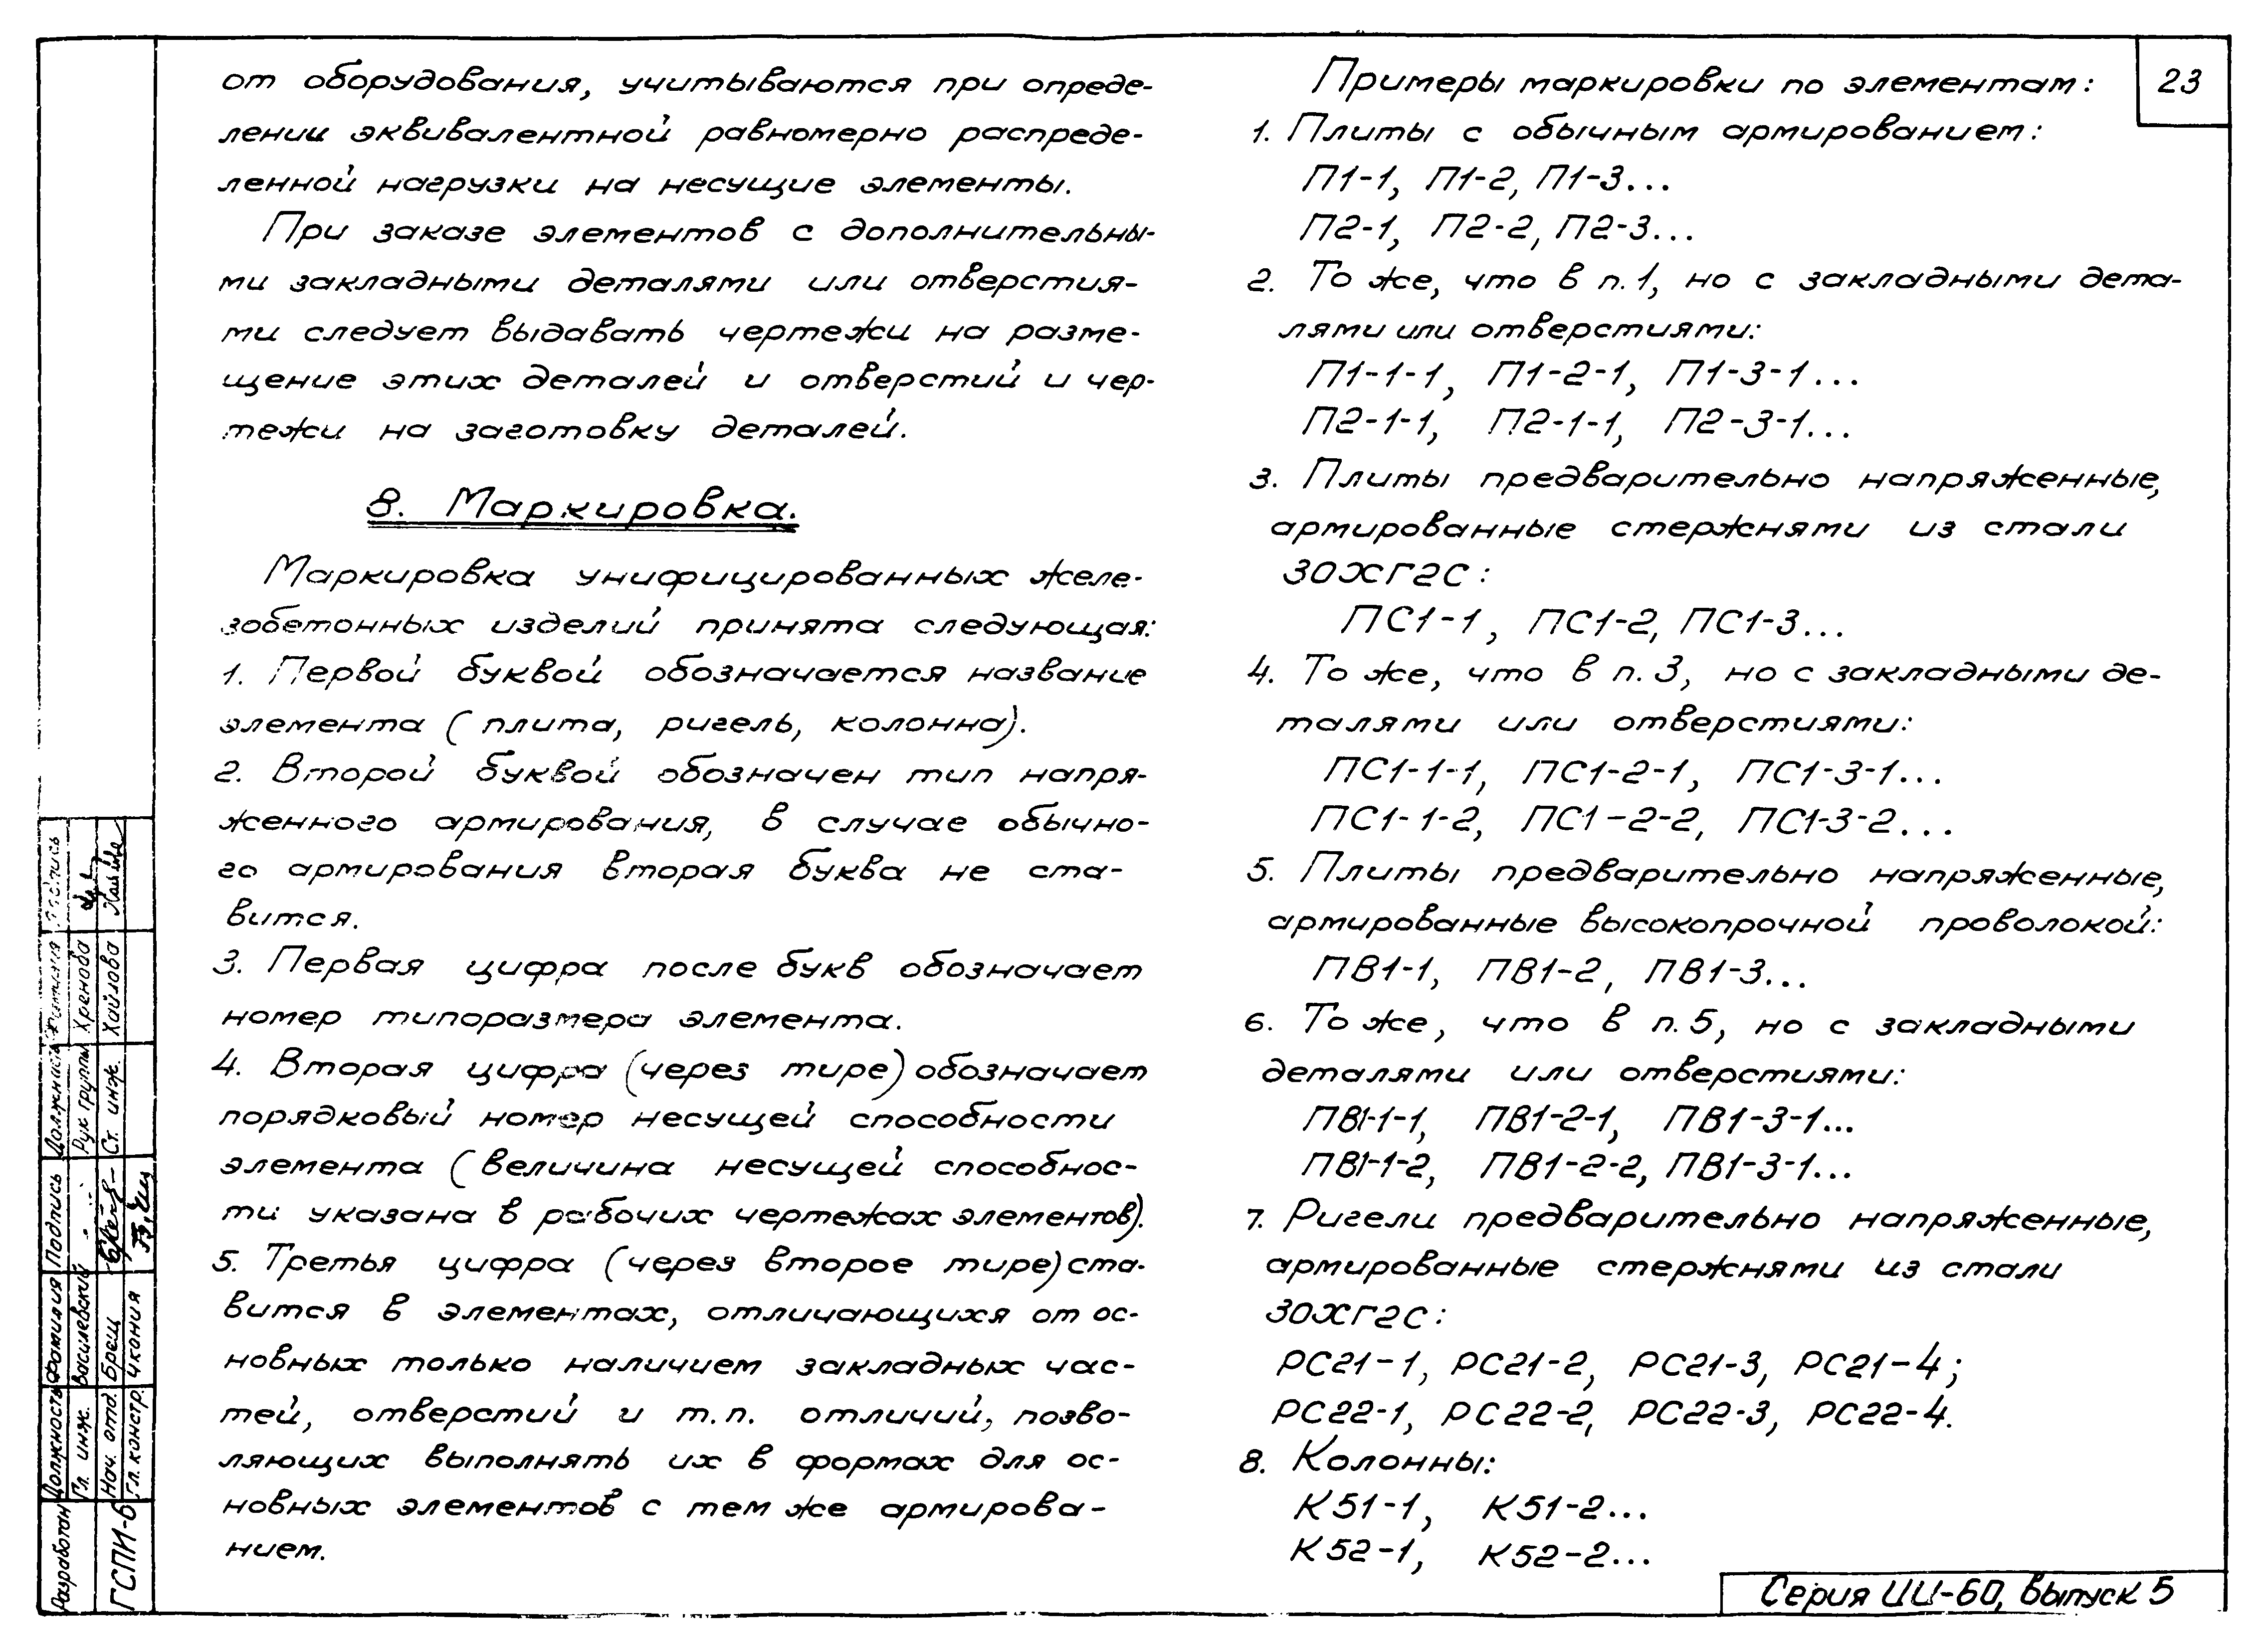 от оборудования, учитываются при опреде-
лении эквивалентной равномерно распреде-
ленной нагрузки на несущие элементы.
При заказе элементов с дополнительны-
ми закладными деталями или отверстия-
ми следует выдавать чертежи на разме-
щение этих деталей и отверстий и чер-
тежи на заготовку деталей.
8. Маркировка.
Маркировка унифицированных желе-
зобетонных изделий принята следующая:
1. Первой буквой обозначается название
элемента (плита, ригель, колонна).
2. Второй буквой обозначен тип напря-
женного армирования, в случае обычно-
го армирования вторая буква не ста-
вится.
3. Первая цифра после букв обозначает
номер типоразмера элемента.
4. Вторая цифра (через тире) обозначает
порядковый номер несущей способности
элемента (величина несущей способнос-
ти указана в рабочих чертежах элементов).
5. Третья цифра (через второе тире) ста-
вится в элементах, отличающихся от ос-
новных только наличием закладных час-
тей, отверстий и т.п. отличий, позво-
ляющих выполнять их в формах для ос-
новных элементов с тем же армирова-
нием.
23
Примеры маркировки по элементам:
1. Плиты с обычным армированием:
П1-1, П1-2, П1-3...
П2-1, П2-2, П2-3...
2. То же, что в п.1, но с закладными дета-
лями или отверстиями:
П1-1-1, П1-2-1, П1-3-1...
П2-1-1, П2-1-1, П2-3-1...
3. Плиты предварительно напряженные,
армированные стержнями из стали
30ХГ2С:
ПС1-1, ПС1-2, ПС1-3...
4. То же, что в п.3, но с закладными де-
талями или отверстиями:
ПС1-1-1, ПС1-2-1, ПС1-3-1...
ПС1-1-2, ПС1-2-2, ПС1-3-2...
5. Плиты предварительно напряженные,
армированные высокопрочной проволокой:
ПВ1-1, ПВ1-2, ПВ1-3...
6. То же, что в п.5, но с закладными
деталями или отверстиями:
ПВ1-1-1, ПВ1-2-1, ПВ1-3-1...
ПВ1-1-2, ПВ1-2-2, ПВ1-3-1...
7. Ригели предварительно напряженные,
армированные стержнями из стали
30ХГ2С:
РС21-1, РС21-2, РС21-3, РС21-4;
РС22-1, РС22-2, РС22-3, РС22-4.
8. Колонны:
К51-1, К51-2...
К52-1, К52-2...
Серия ИИ-60, выпуск 5
Разработан Должность Фамилия Подпись Должность Фамилия Подпись
ГСПИ-6
Гл. инж. Василевский Рук группы Хренова
Нач. отд. Брещ Ст. инж. Хайлова
Гл. констр. Чкония